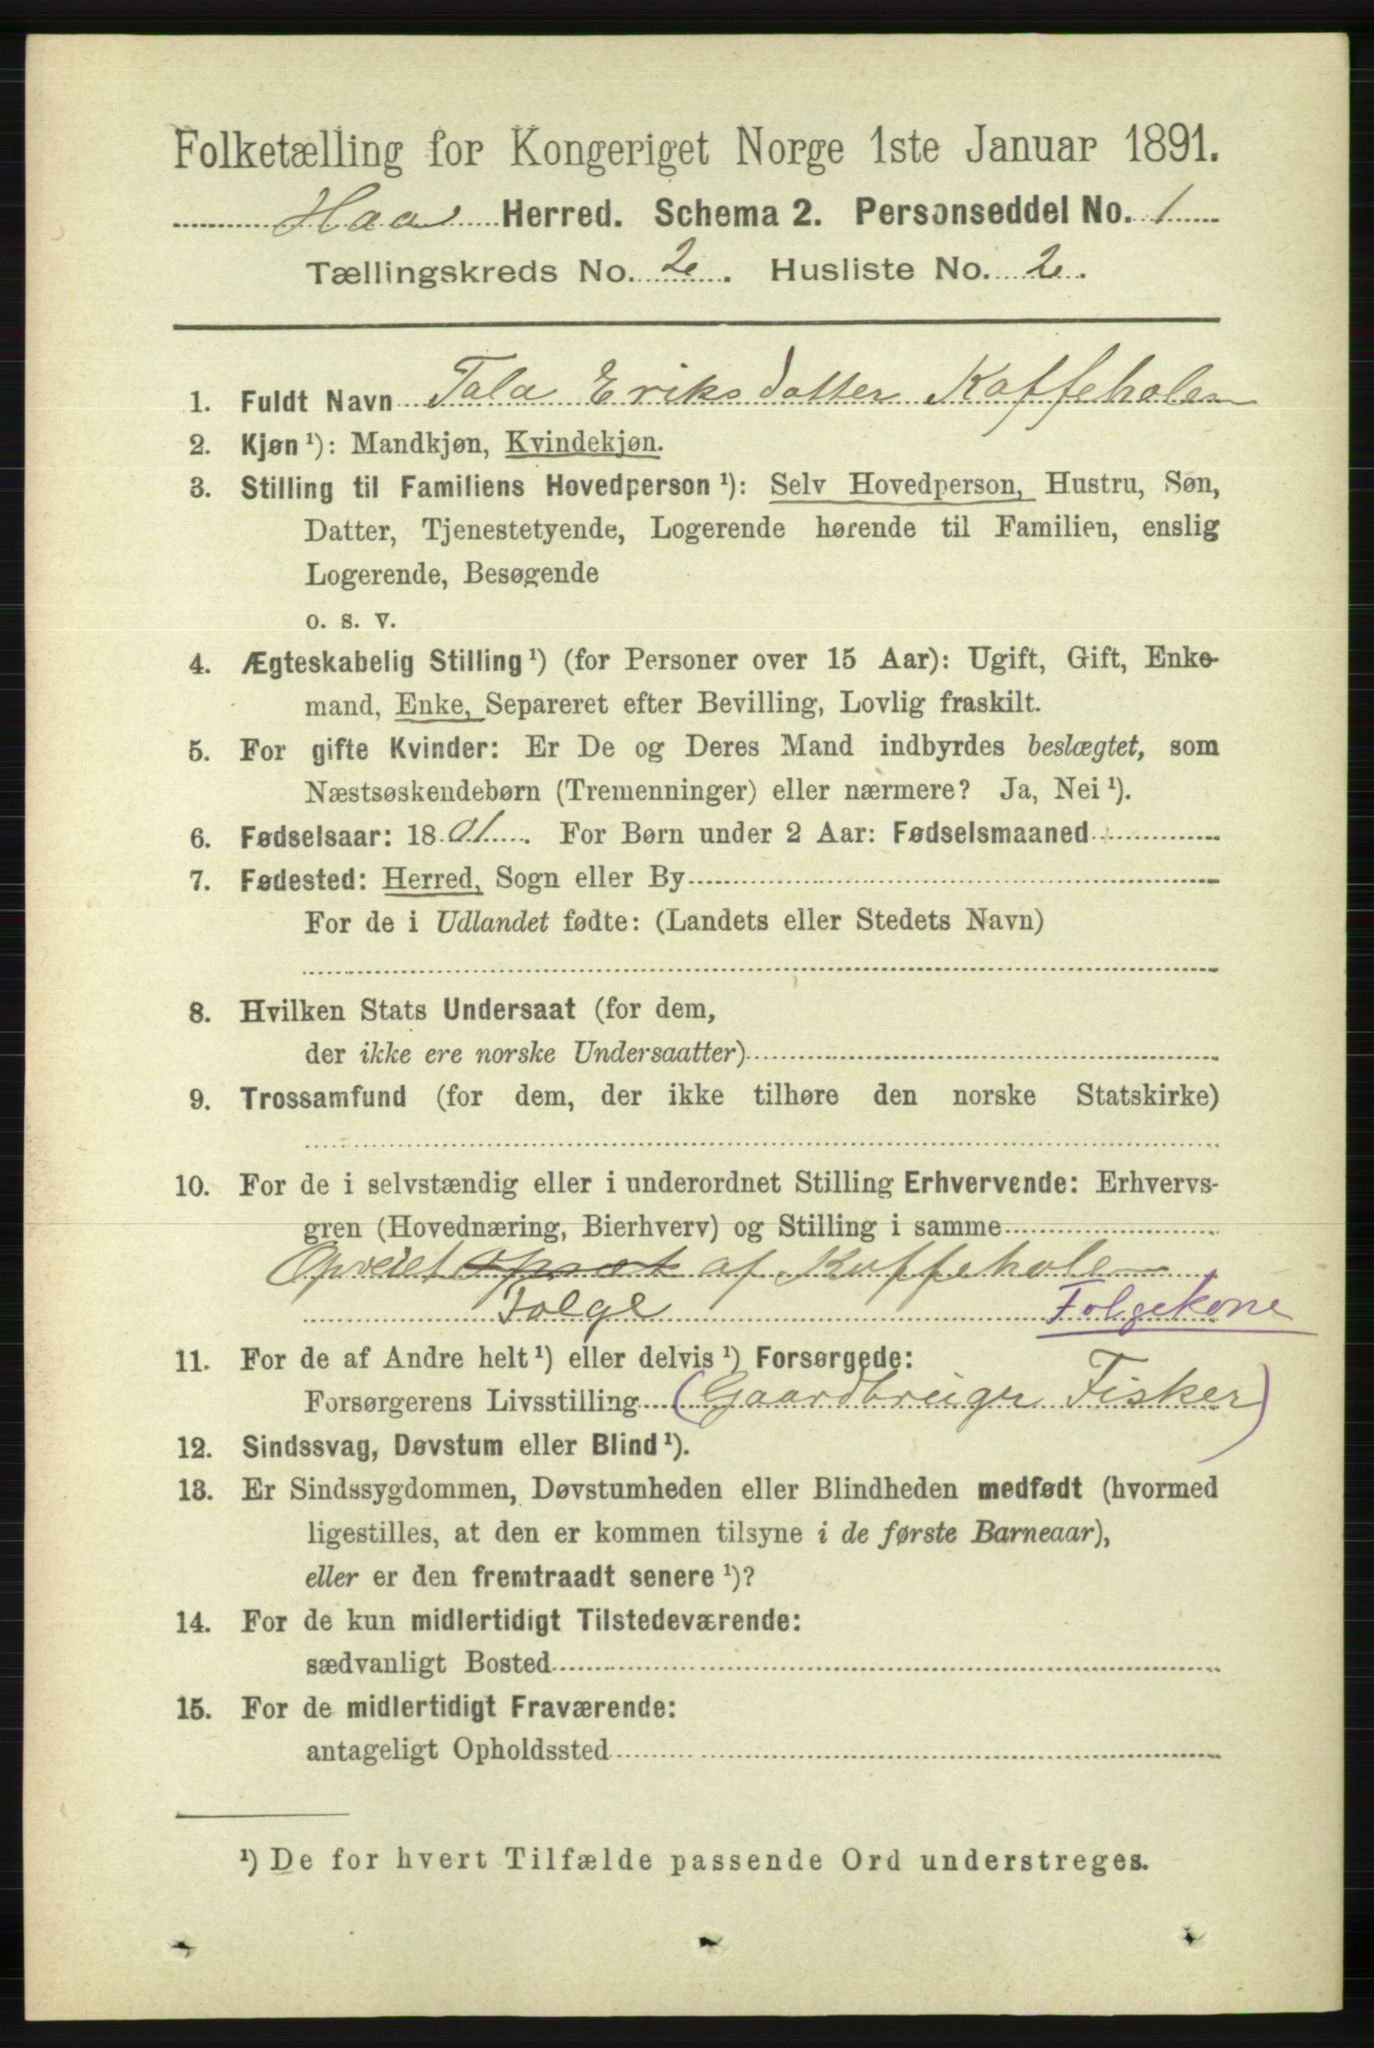 Folketælling for Kongeriget Norge 1ste Januar 1891.
Haa Herred. Schema 2. Personseddel No. 1
Tællingskreds No. 2. Husliste No. 2.
1. Fuldt Navn Tala Eriksdatter Kaffeholen
2. Kjøn ¹): Mandkjøn, Kvindekjøn.
3. Stilling til Familiens Hovedperson ¹): Selv Hovedperson, Hustru, Søn,
Datter, Tjenestetyende, Logerende hørende til Familien, enslig
Logerende, Besøgende
o. s. v.
4. Ægteskabelig Stilling ¹) (for Personer over 15 Aar): Ugift, Gift, Enke-
mand, Enke, Separeret efter Bevilling, Lovlig fraskilt.
5. For gifte Kvinder: Er De og Deres Mand indbyrdes beslægtet, som
Næstsøskendebørn (Tremenninger) eller nærmere? Ja, Nei ¹).
6. Fødselsaar: 1801. For Børn under 2 Aar: Fødselsmaaned
7. Fødested: Herred, Sogn eller By
For de i Udlandet fødte: (Landets eller Stedets Navn)
8. Hvilken Stats Undersaat (for dem,
der ikke ere norske Undersaatter)
9. Trossamfund (for dem, der ikke tilhøre den norske Statskirke)
10. For de i selvstændig eller i underordnet Stilling Erhvervende: Erhvervs-
gren (Hovednæring, Bierhverv) og Stilling i samme
af Kaffehole
Folge Folgekone
11. For de af Andre helt ¹) eller delvis ¹) Forsørgede:
Forsørgerens Livsstilling (Gaardbruger Fisker)
12. Sindssvag, Døvstum eller Blind ¹).
13. Er Sindssygdommen, Døvstumheden eller Blindheden medfødt (hvormed
ligestilles, at den er kommen tilsyne i de første Barneaar),
eller er den fremtraadt senere ¹)?
14. For de kun midlertidigt Tilstedeværende:
sædvanligt Bosted
15. For de midlertidigt Fraværende:
antageligt Opholdssted
¹) De for hvert Tilfælde passende Ord understreges.